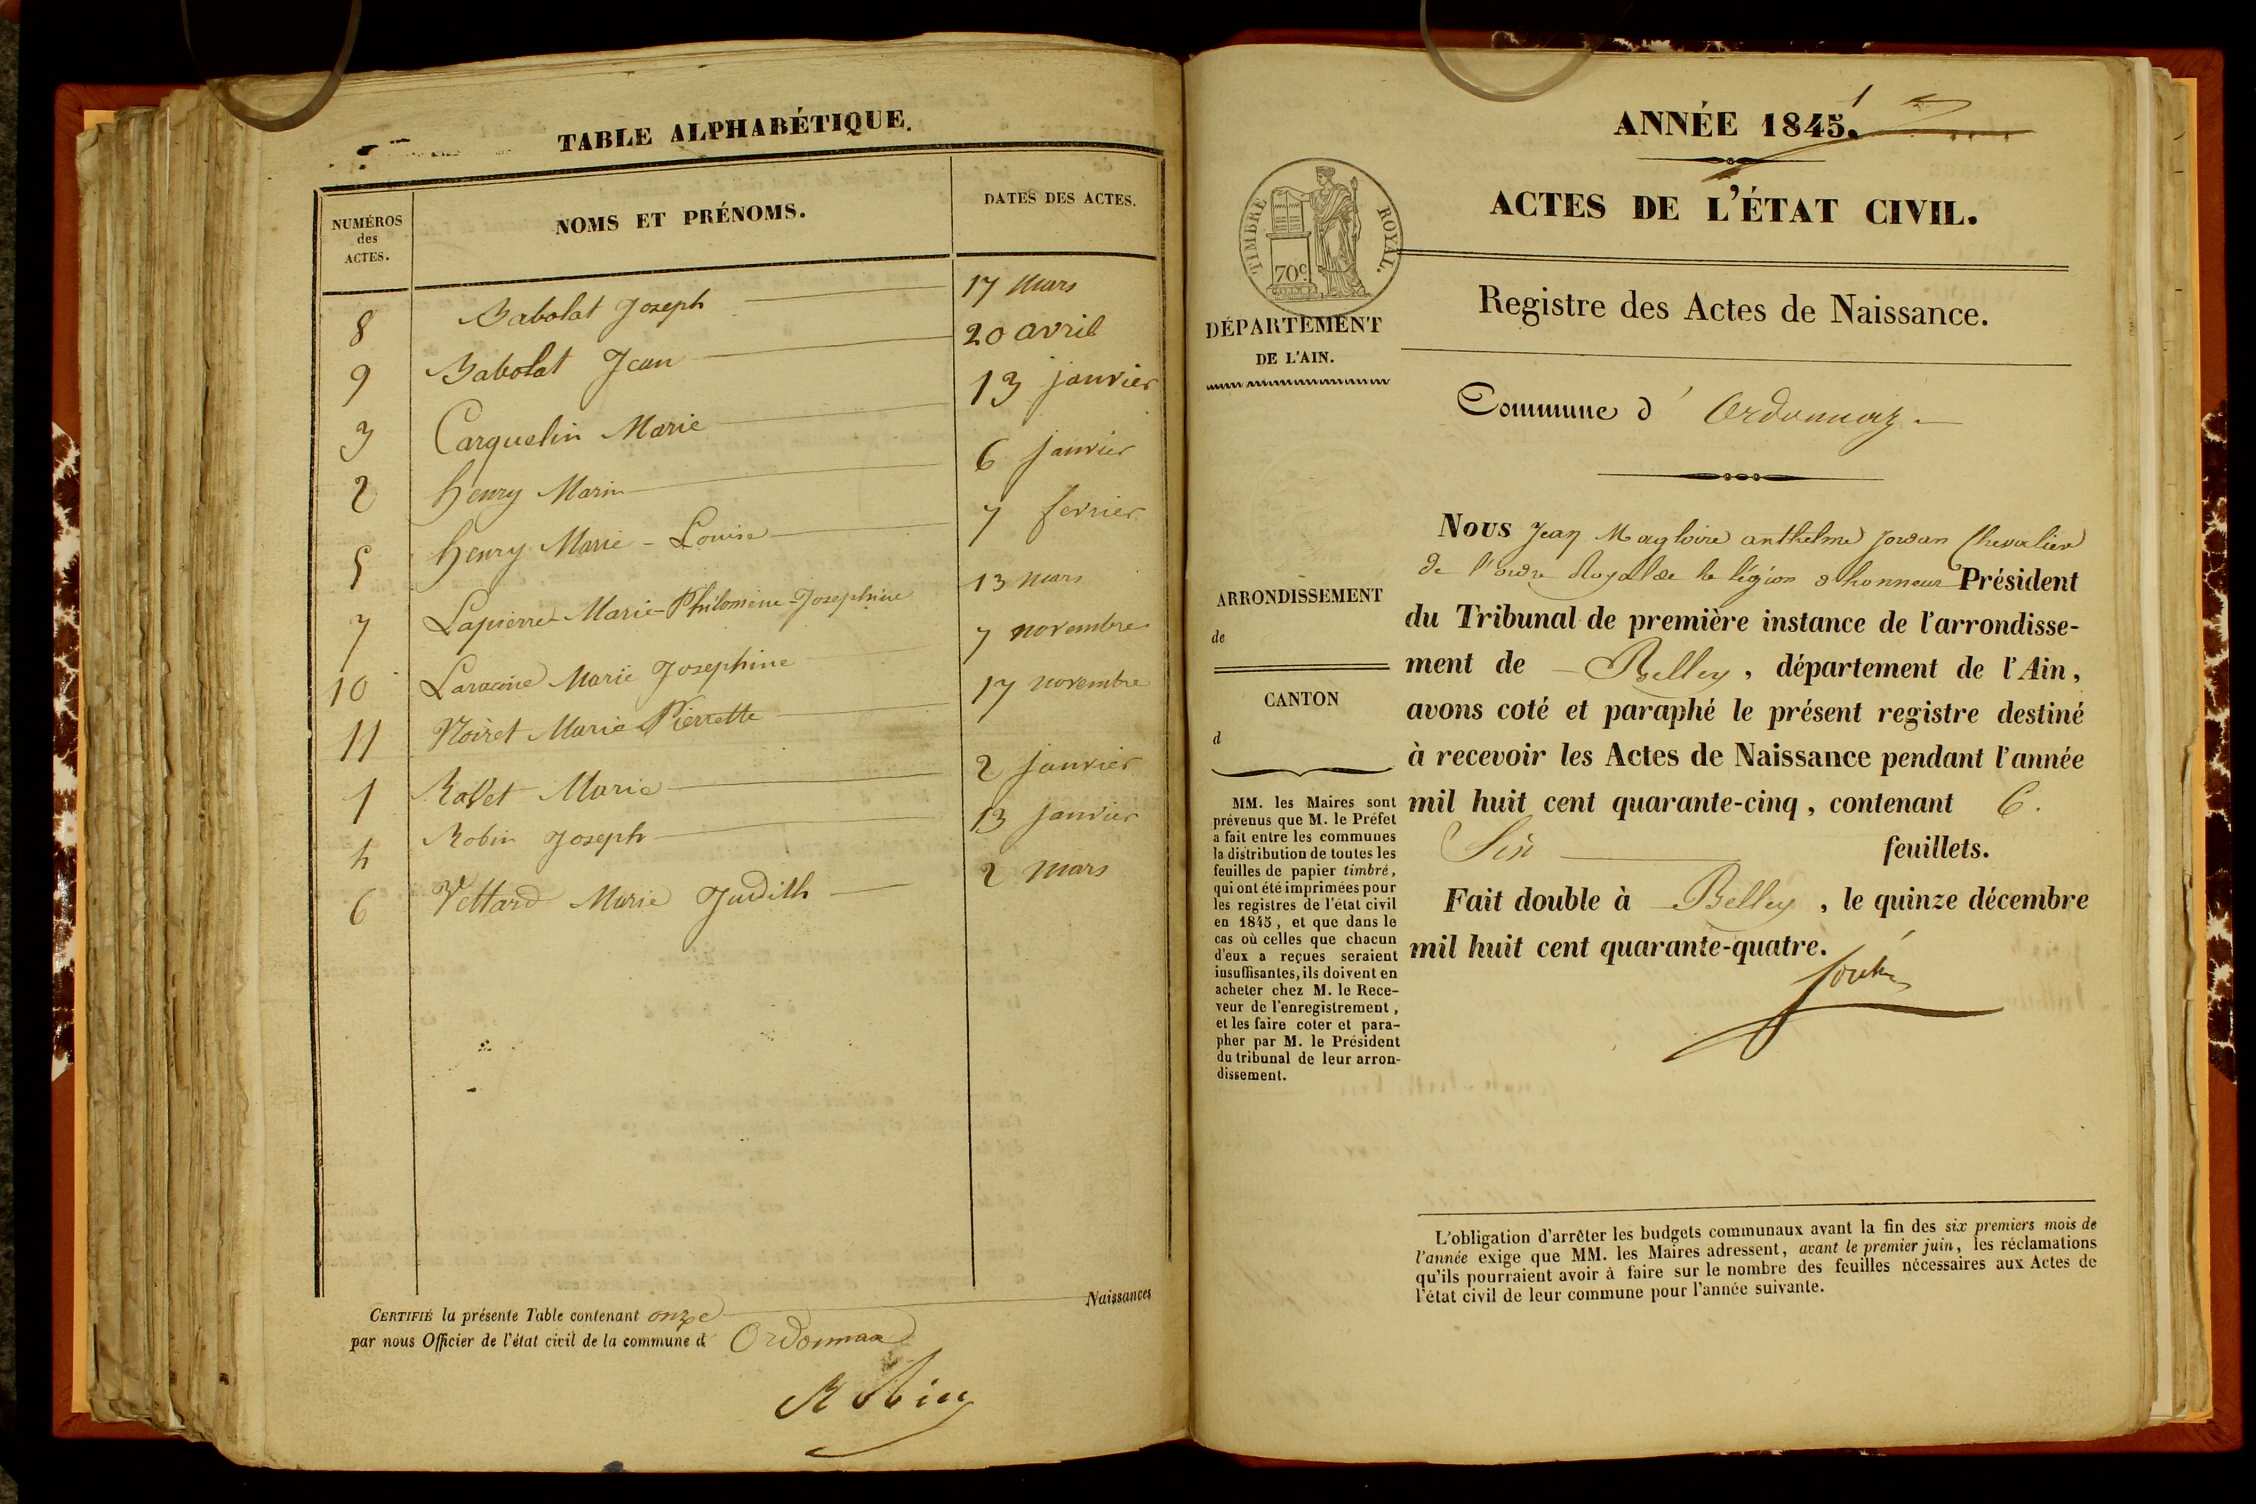 TABLE ALPHABÉTIQUE.
NUMÉROS
des
ACTES.
NOMS ET PRÉNOMS.
DATES DES ACTES.
8 Babolat Joseph 17 Mars
9 Babolat Jean 20 avril
3 Carquelin Marie 13 janvier
2 henry Marin 6 janvier
5 henry Marie - Louise 7 fevrier
7 Lapierre Marie-Philomène-Josephine 13 mars
10 Laracine Marie Josephine 7 novembre
11 Noiret Marie Pierrette 17 novembre
1 Ravet Marie 2 janvier
4 Robin Joseph 13 janvier
6 Vettard Marie Judith 2 mars
CERTIFIÉ la présente Table contenant onze Naissances
par nous Officier de l'état civil de la commune d Ordonnaz
Robin
1
ANNÉE 1845.
ACTES DE L'ÉTAT CIVIL.
TIMBRE ROYAL.
70c.
Registre des Actes de Naissance.
DÉPARTEMENT
DE L'AIN.
Commune d' Ordonnaz
ARRONDISSEMENT
de
CANTON
d
MM. les Maires sont
prévenus que M. le Préfet
a fait entre les communes
la distribution de toutes les
feuilles de papier timbré,
qui ont été imprimées pour
les registres de l'état civil
en 1845, et que dans le
cas où celles que chacun
d'eux a reçues seraient
insuffisantes, ils doivent en
acheter chez M. le Rece-
veur de l'enregistrement,
et les faire coter et para-
pher par M. le Président
du tribunal de leur arron-
dissement.
Nous Jean Magloire anthelme jordan Chevalier
de l'ordre Royal de la légion d'honneur Président
du Tribunal de première instance de l'arrondisse-
ment de Belley, département de l'Ain,
avons coté et paraphé le présent registre destiné
à recevoir les Actes de Naissance pendant l'année
mil huit cent quarante-cinq, contenant 6.
Six feuillets.
Fait double à Belley, le quinze décembre
mil huit cent quarante-quatre.
L'obligation d'arrêter les budgets communaux avant la fin des six premiers mois de
l'année exige que MM. les Maires adressent, avant le premier juin, les réclamations
qu'ils pourraient avoir à faire sur le nombre des feuilles nécessaires aux Actes de
l'état civil de leur commune pour l'année suivante.